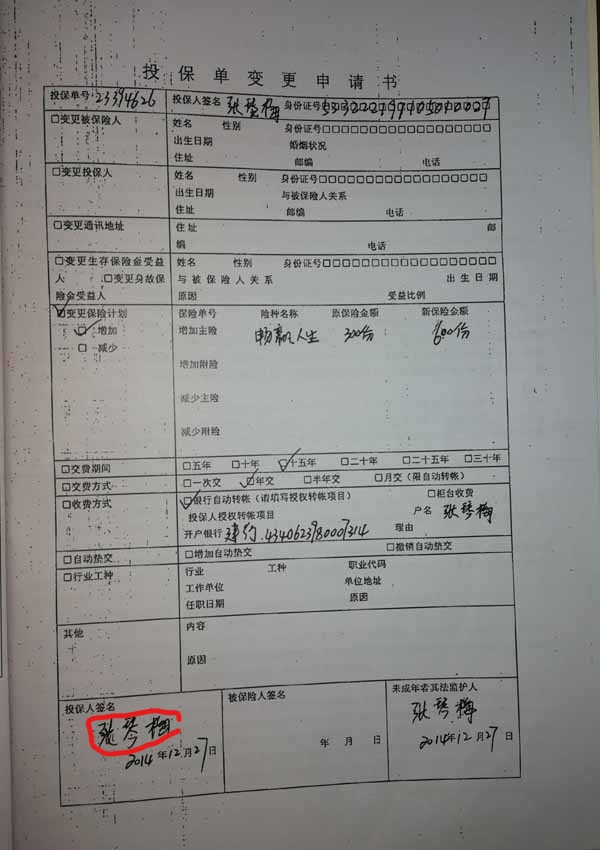 投保单变更申请书
投保单号 23394626 投保人签名 张琴梅 身份证号
□变更被保险人 姓名 性别 身份证号□□□□□□□□□□□□□□□□□□
出生日期 婚姻状况
住址 邮编 电话
□变更投保人 姓名 性别 身份证号□□□□□□□□□□□□□□□□□□
出生日期 与被保险人关系
住址 邮编 电话
□变更通讯地址 住址 邮
编 电话
□变更生存保险金受益 姓名 性别 身份证号□□□□□□□□□□□□□□□□□□
人 □变更身故保 与被保险人关系 出生日期
险金受益人 原因 受益比例
☑变更保险计划 保险单号 险种名称 原保险金额 新保险金额
☑ 增加 增加主险 畅赢人生 300份 600份
□ 减少
增加附险
减少主险
减少附险
□交费期间 □五年 □十年 ☑十五年 □二十年 □二十五年 □三十年
□交费方式 □一次交 ☑年交 □半年交 □月交（限自动转帐）
□收费方式 ☑银行自动转帐（请填写授权转帐项目） □柜台收费
投保人授权转帐项目 户名 张琴梅
开户银行 建行 理由
□自动垫交 □增加自动垫交 □撤销自动垫交
□行业工种 行业 工种 职业代码
工作单位 单位地址
任职日期 原因
其他 内容
原因
投保人签名 被保险人签名 未成年者其法监护人
张琴梅 张琴梅
2014年12月27日 年 月 日 2014年12月27日